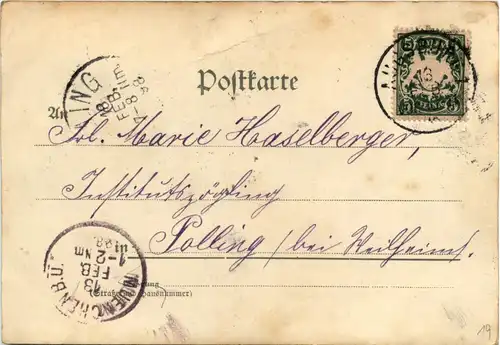 Postkarte
An
Frl. Marie Haselberger,
Institutszögling
in
Polling (bei Weilheim).
(Straße und Hausnummer)
ING
13
FEB.
7-8 Nm.
98
5 5
MUENCHEN B.U.
13
FEB.
1-2 Nm
98.
19